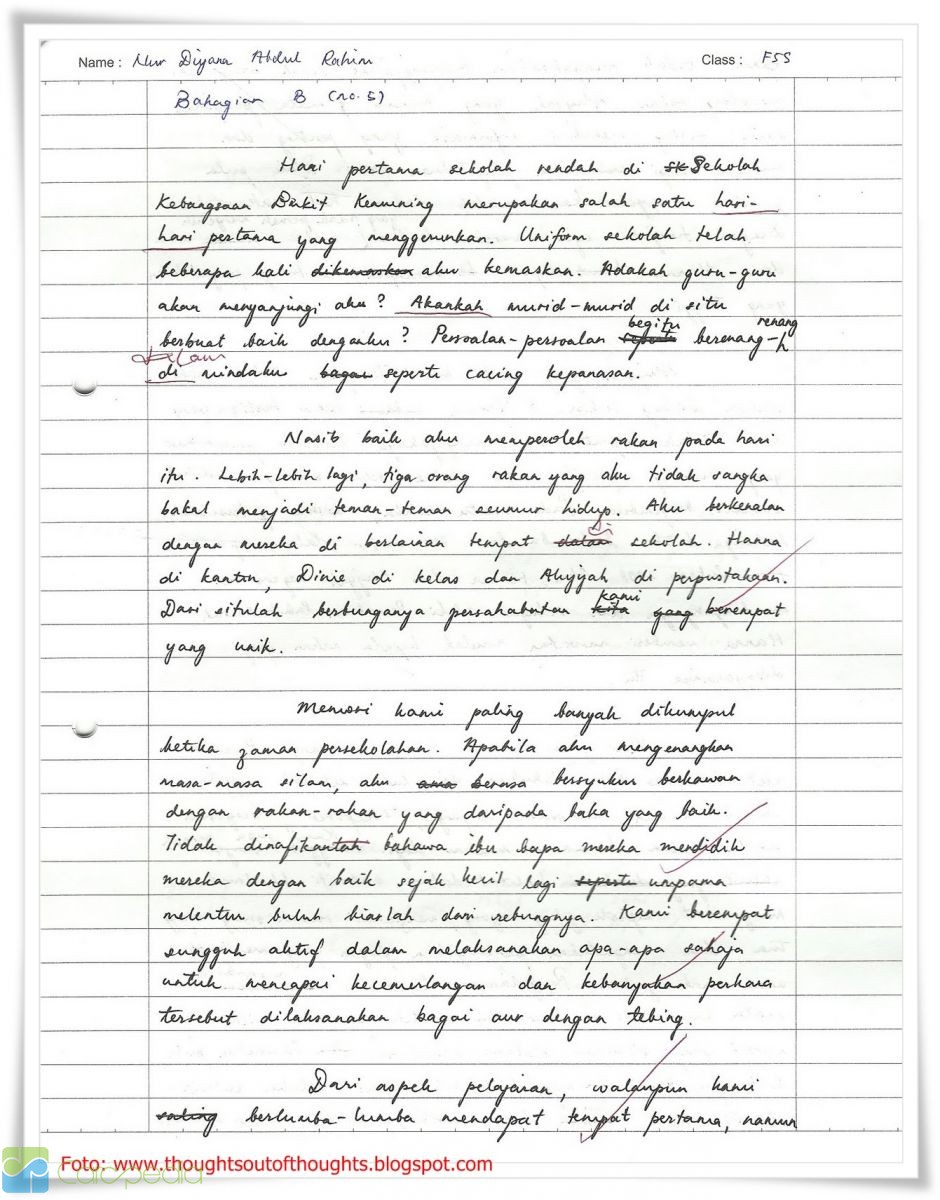 Name : Nur Diyana Abdul Rahim Class : F5S
Bahagian B (no. 5)
Hari pertama sekolah rendah di sk Sekolah
Kebangsaan Bukit Kemuning merupakan salah satu hari-
hari pertama yang menggerunkan. Uniform sekolah telah
beberapa kali dikemaskan aku kemaskan. Adakah guru-guru
akan menyanjungi aku? Akankah murid-murid di situ
berbuat baik denganku? Persoalan-persoalan begitu berenang-renang
dalam
di mindaku bagai seperti cacing kepanasan.
Nasib baik aku memperoleh rakan pada hari
itu. Lebih-lebih lagi, tiga orang rakan yang aku tidak sangka
bakal menjadi teman-teman seumur hidup. Aku berkenalan
di
dengan mereka di berlainan tempat dalam sekolah. Hanna
di kantin, Dinie di kelas dan Aliyyah di perpustakaan.
kami
Dari situlah berbunganya persahabatan kita yang berempat
yang unik.
Memori kami paling banyak dikumpul
ketika zaman persekolahan. Apabila aku mengenangkan
masa-masa silam, aku ama berasa bersyukur berkawan
dengan rakan-rakan yang daripada baka yang baik.
Tidak dinafikantah bahawa ibu bapa mereka mendidik
mereka dengan baik sejak kecil lagi seperti umpama
melentur buluh biarlah dari rebungnya. Kami berempat
sungguh aktif dalam melaksanakan apa-apa sahaja
untuk mencapai kecemerlangan dan kebanyakan perkara
tersebut dilaksanakan bagai aur dengan tebing.
Dari aspek pelajaran, walaupun kami
saling berlumba-lumba mendapat tempat pertama, namun
Foto: www.thoughtsoutofthoughts.blogspot.com